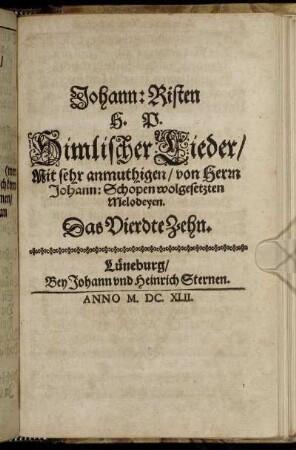 Johann: Risten
H. P.
Himlischer Lieder/
Mit sehr anmuthigen/ von Herrn
Johann: Schopen wolgesetzten
Melodeyen.
Das Vierdte Zehn.
Lüneburg/
Bey Johann vnd Heinrich Sternen.
ANNO M. DC. XLII.